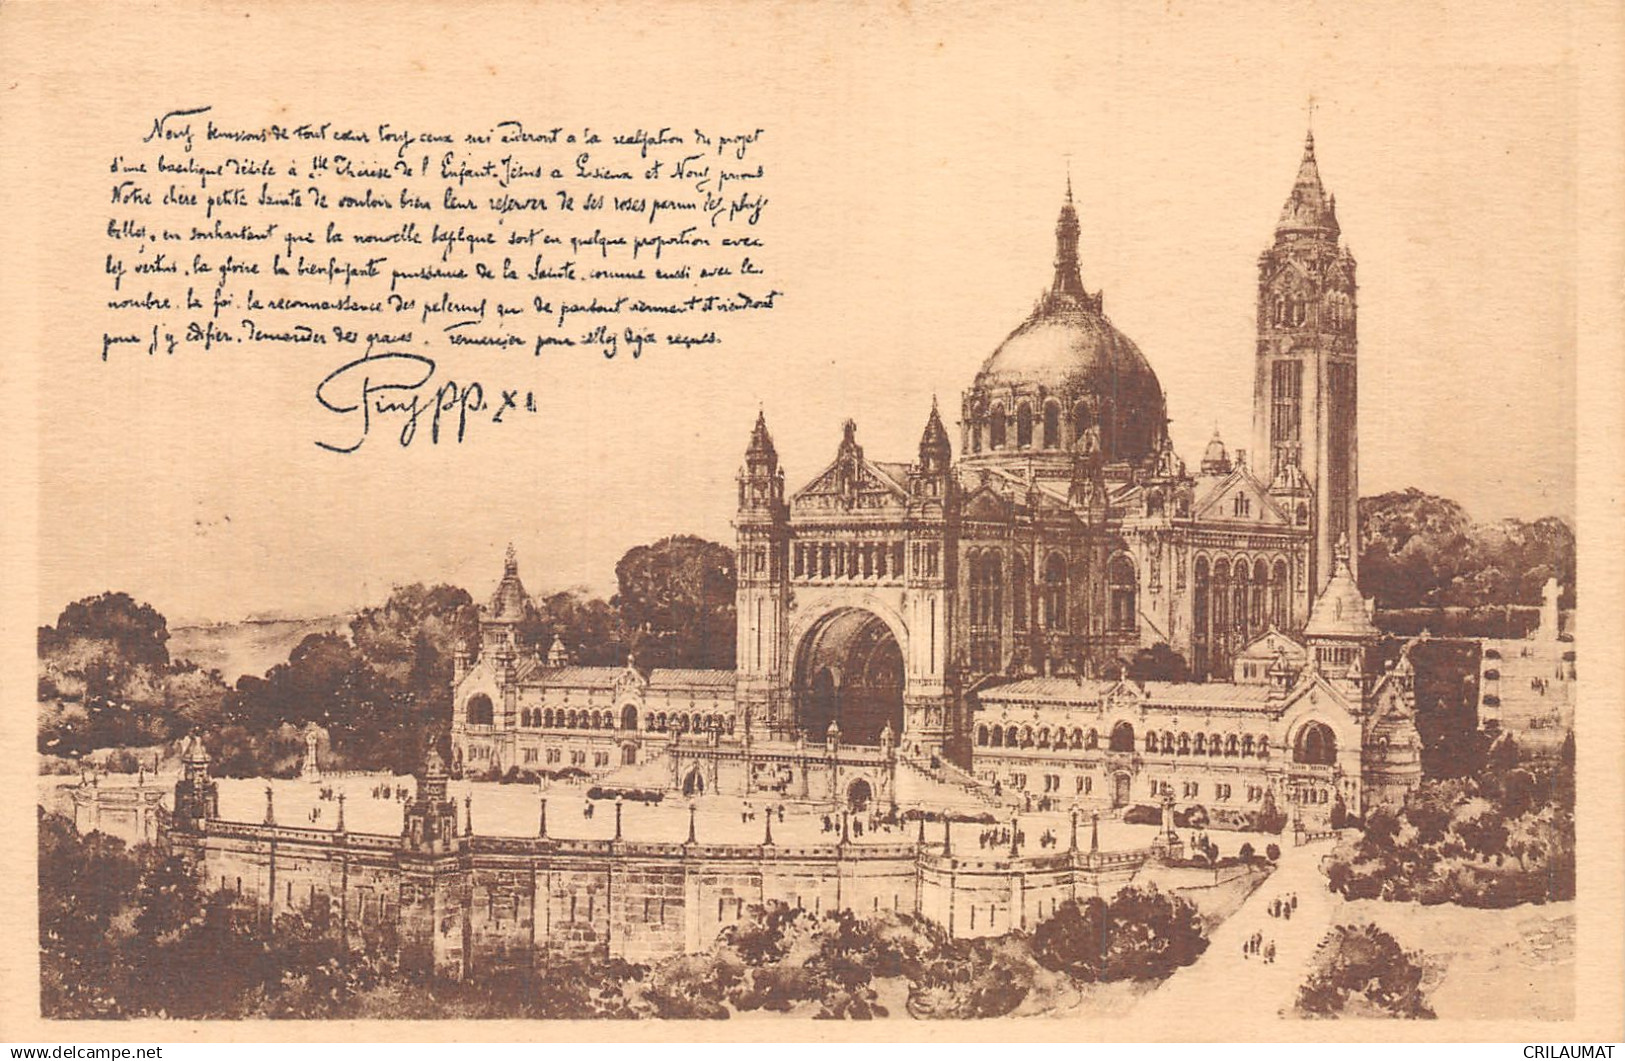 Nous benissons de tout cœur tous ceux qui aideront a la realisation du projet
d'une basilique dédiée à Ste Thérèse de l'Enfant-Jésus a Lisieux et Nous prions
Notre chère petite Sainte de vouloir bien leur reserver de ses roses parmi les plus
belles, en souhaitant que la nouvelle basilique soit en quelque proportion avec
les vertus, la gloire la bienfaisante puissance de la Sainte, comme aussi avec le
nombre, la foi, la reconnaissance des pelerins qui de partout viennent et viendront
pour s'y edifier, demander des graces, remercier pour celles deja reçues.
Pius PP. XI
CRILAUMAT